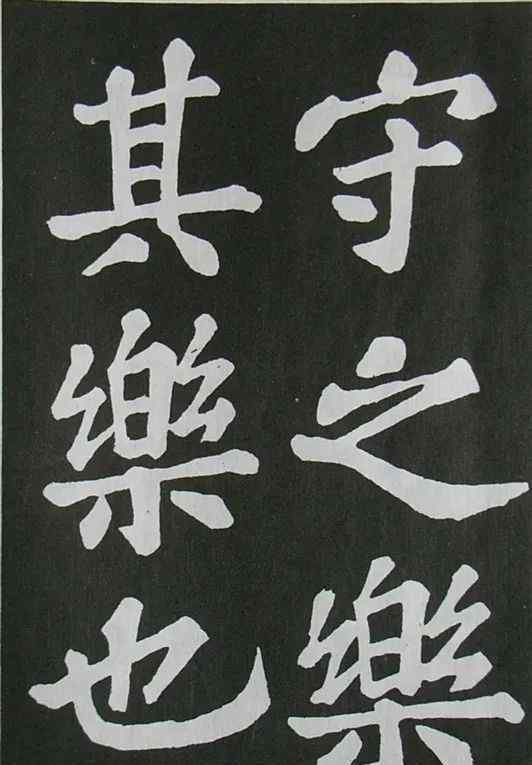 守之樂
其樂也